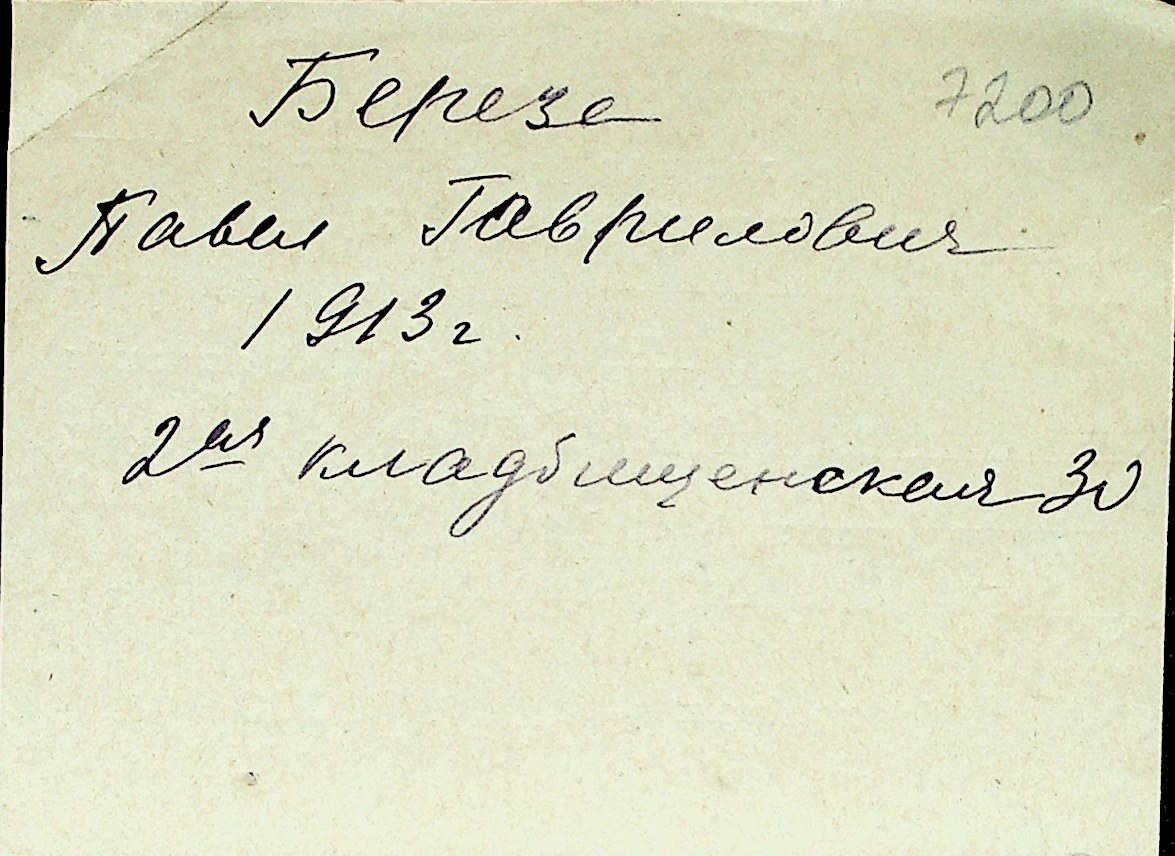 Береза 7200
Павел Гаврилович
1913 г.
2ая кладбищенская 30